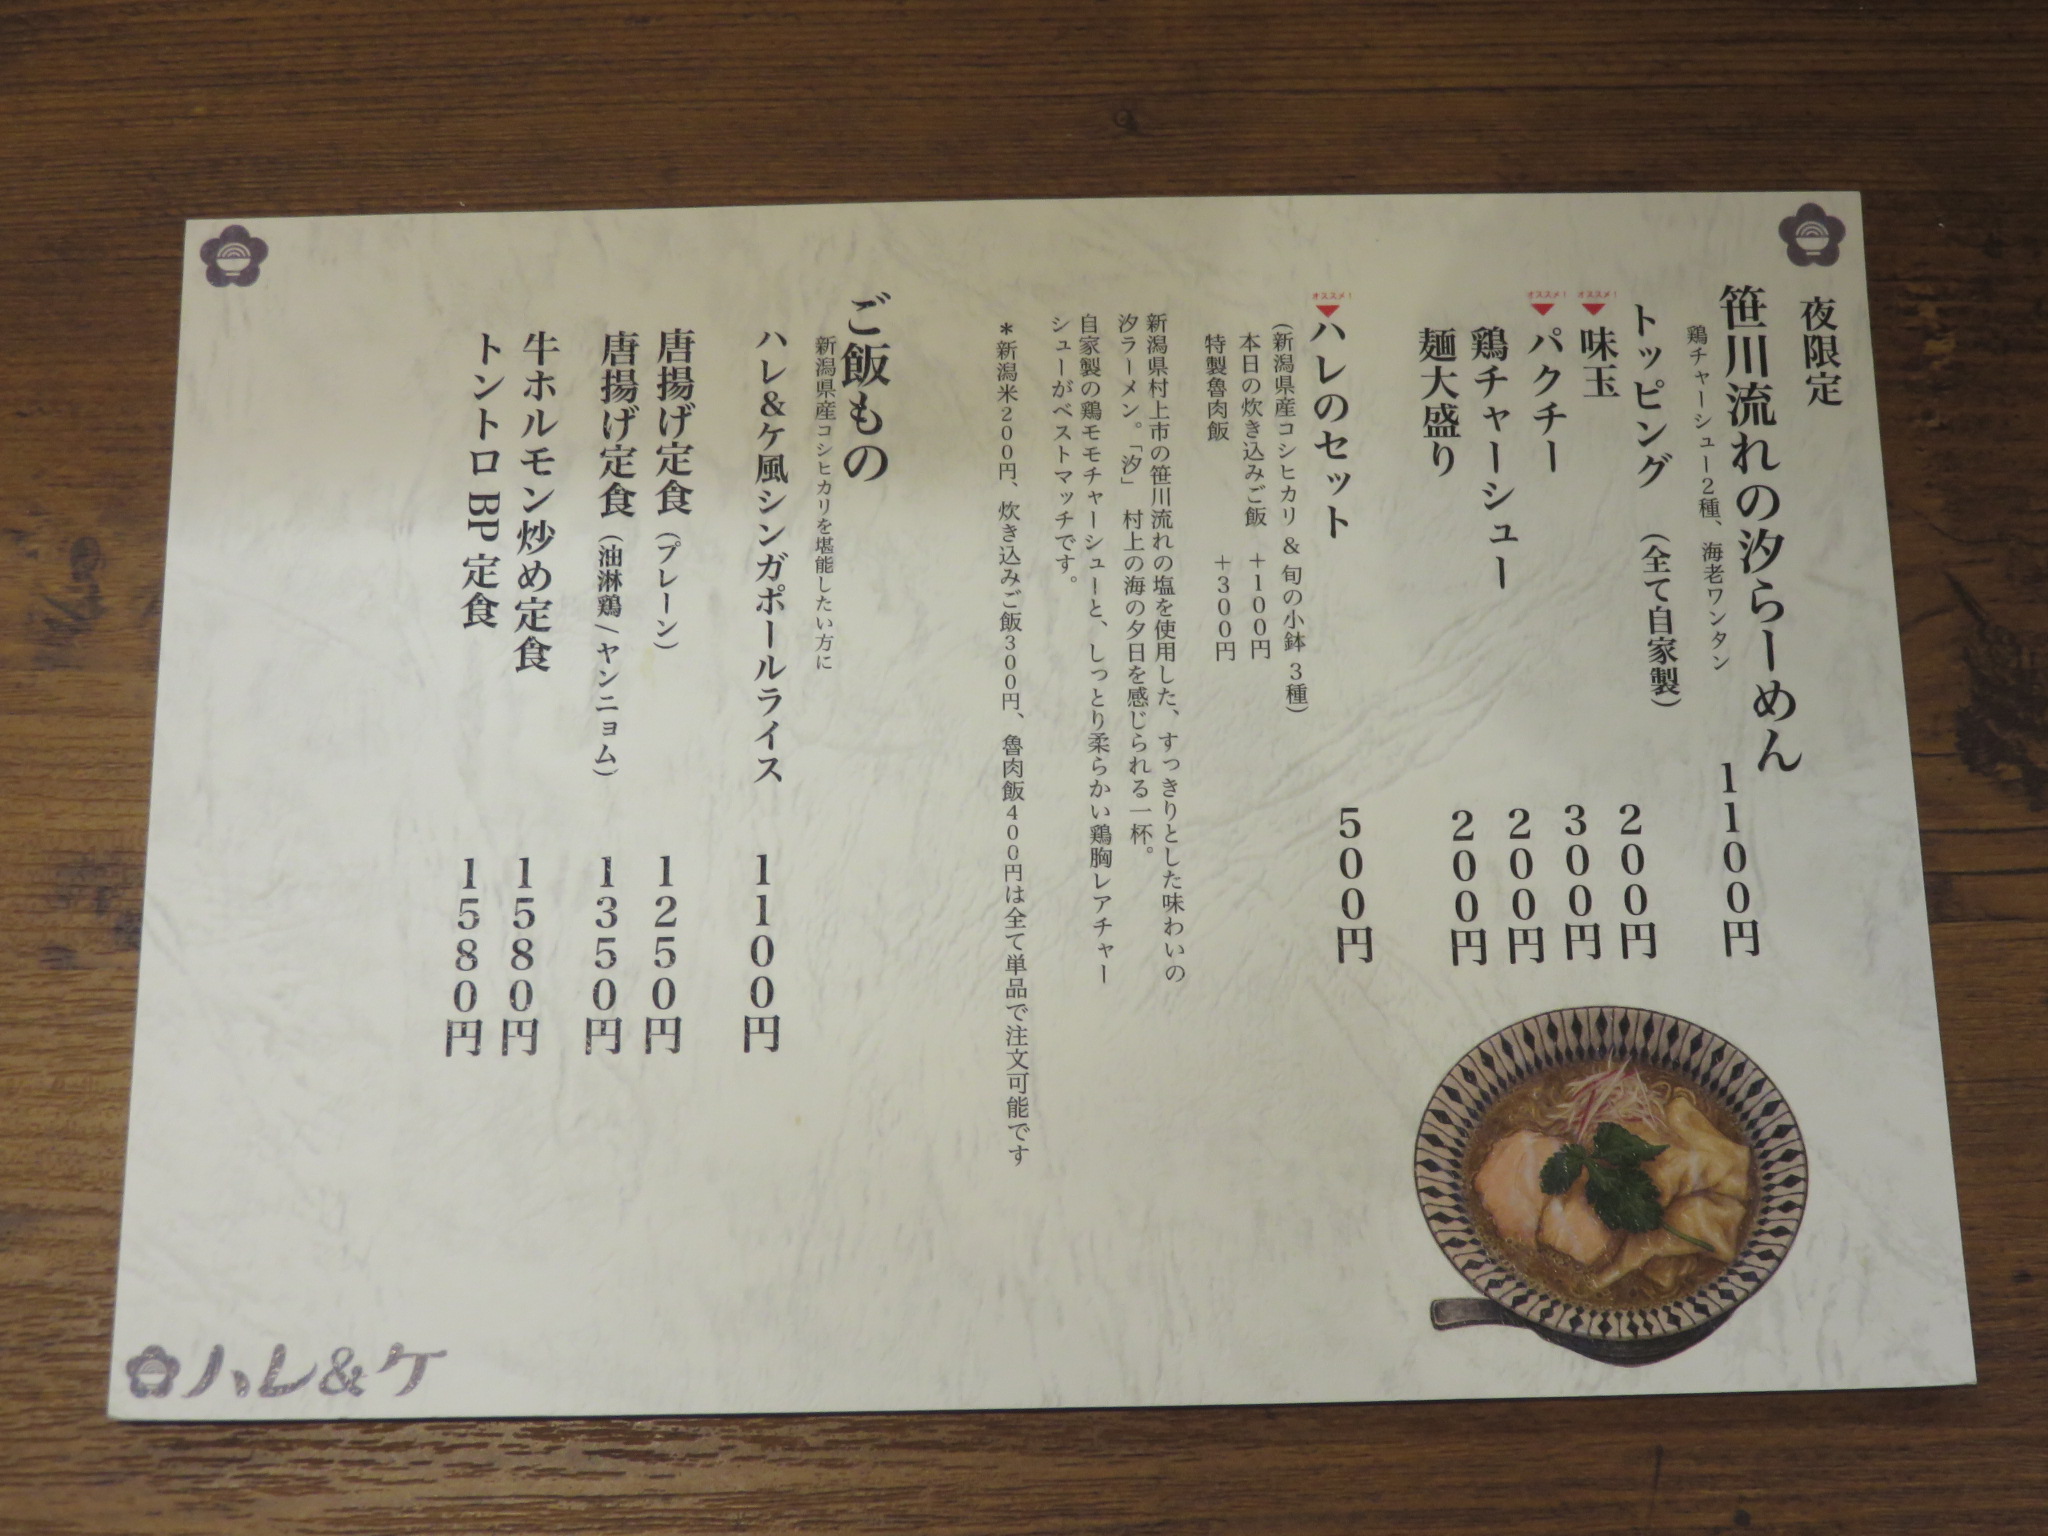 夜限定
笹川流れの汐らーめん 1100円
鶏チャーシュー2種、海老ワンタン
トッピング (全て自家製)
オススメ!
味玉 200円
オススメ!
パクチー 300円
鶏チャーシュー 200円
麺大盛り 200円
オススメ!
ハレのセット 500円
(新潟県産コシヒカリ & 旬の小鉢 3種)
本日の炊き込みご飯 +100円
特製魯肉飯 +300円
新潟県村上市の笹川流れの塩を使用した、すっきりとした味わいの
汐ラーメン。「汐」 村上の海の夕日を感じられる一杯。
自家製の鶏モモチャーシューと、しっとり柔らかい鶏胸レアチャー
シューがベストマッチです。
*新潟米200円、炊き込みご飯300円、魯肉飯400円は全て単品で注文可能です
ご飯もの
新潟県産コシヒカリを堪能したい方に
ハレ&ケ風シンガポールライス 1100円
唐揚げ定食 (プレーン) 1250円
唐揚げ定食 (油淋鶏/ヤンニョム) 1350円
牛ホルモン炒め定食 1580円
トントロ BP 定食 1580円
ハレ&ケ